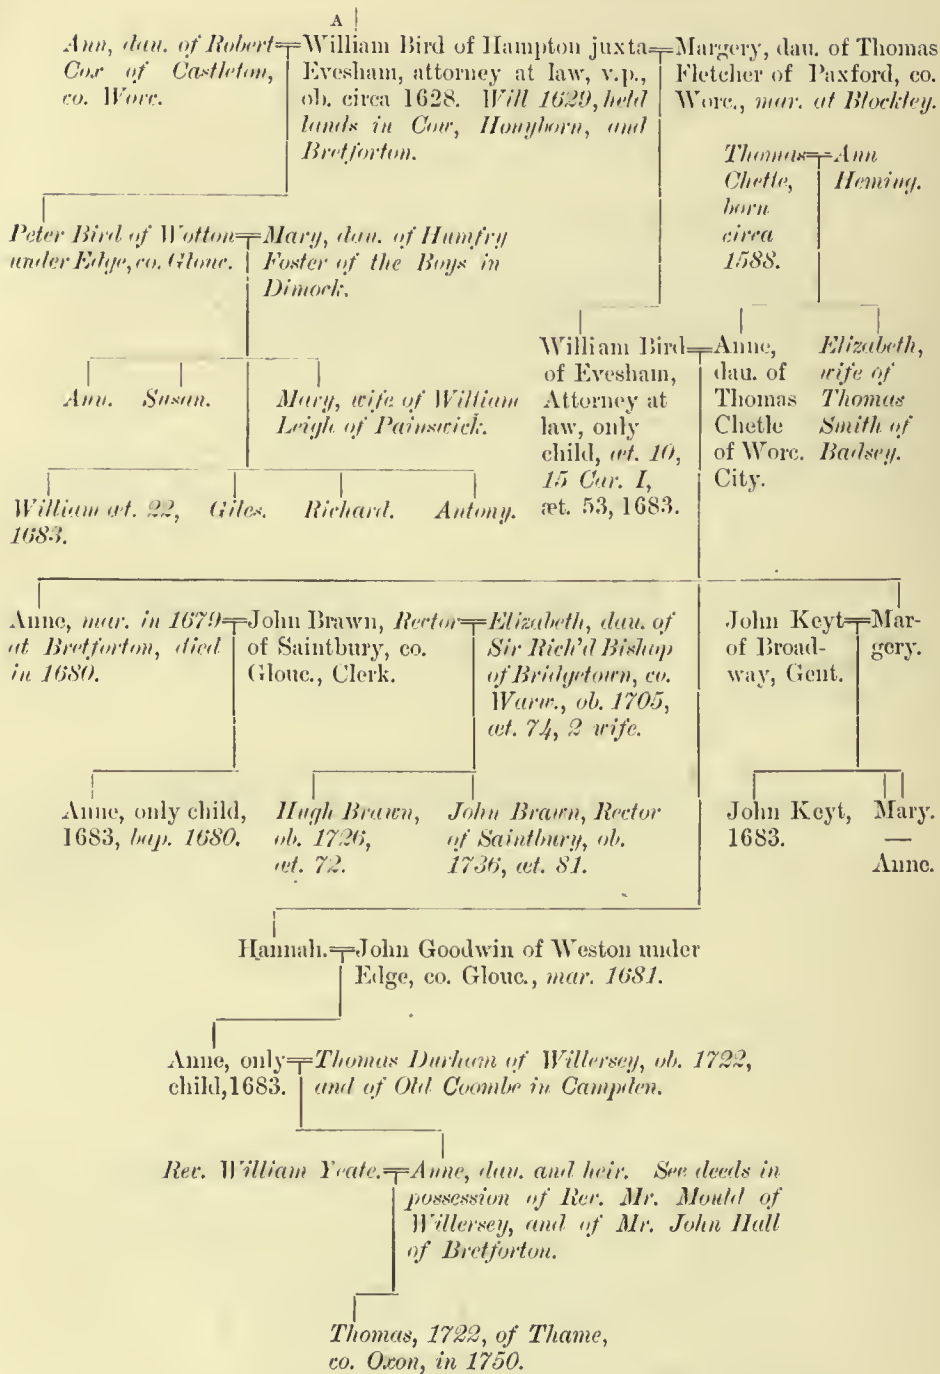 A
Ann, dau. of Robert
Cox of Castleton,
co. Worc.
William Bird of Hampton juxta
Evesham, attorney at law, v.p.,
ob. circa 1628. Will 1629, held
lands in Cow, Honyborn, and
Bretforton.
Margery, dau. of Thomas
Fletcher of Paxford, co.
Worc., mar. at Blockley.
Thomas
Chetle,
born
circa
1588.
Ann
Heming.
Peter Bird of Wotton
under Edge, co. Glouc.
Mary, dau. of Humfry
Foster of the Boys in
Dimock.
Ann. Susan. Mary, wife of William
Leigh of Painswick.
William Bird
of Evesham,
Attorney at
law, only
child, æt. 10,
15 Car. I,
æt. 53, 1683.
Anne,
dau. of
Thomas
Chetle
of Worc.
City.
Elizabeth,
wife of
Thomas
Smith of
Badsey.
William æt. 22,
1683.
Giles. Richard. Antony.
Anne, mar. in 1679
at Bretforton, died
in 1680.
John Brawn, Rector
of Saintbury, co.
Glouc., Clerk.
Elizabeth, dau. of
Sir Rich'd Bishop
of Bridgetown, co.
Warw., ob. 1705,
æt. 74, 2 wife.
John Keyt
of Broad-
way, Gent.
Mar-
gery.
Anne, only child,
1683, bap. 1680.
Hugh Brawn,
ob. 1726,
æt. 72.
John Brawn, Rector
of Saintbury, ob.
1736, æt. 81.
John Keyt,
1683.
Mary.
—
Anne.
Hannah. John Goodwin of Weston under
Edge, co. Glouc., mar. 1681.
Anne, only
child, 1683.
Thomas Durham of Willersey, ob. 1722,
and of Old Coombe in Campden.
Rev. William Yeate. Anne, dau. and heir. See deeds in
possession of Rev. Mr. Mould of
Willersey, and of Mr. John Hall
of Bretforton.
Thomas, 1722, of Thame,
co. Oxon, in 1750.